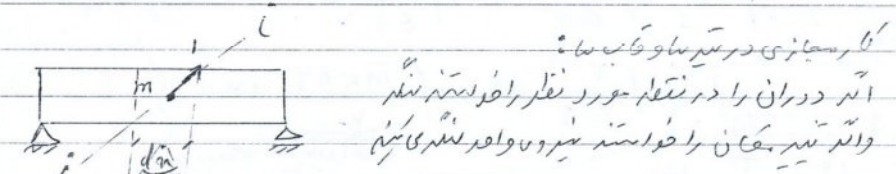 کار مجازی در تیرها و قاب ها:
اگر دوران را در نقطه مورد نظر را خواستند لنگر
و اگر تغییر مکان را خواستند نیروی واحد
i
1
m
i
dx